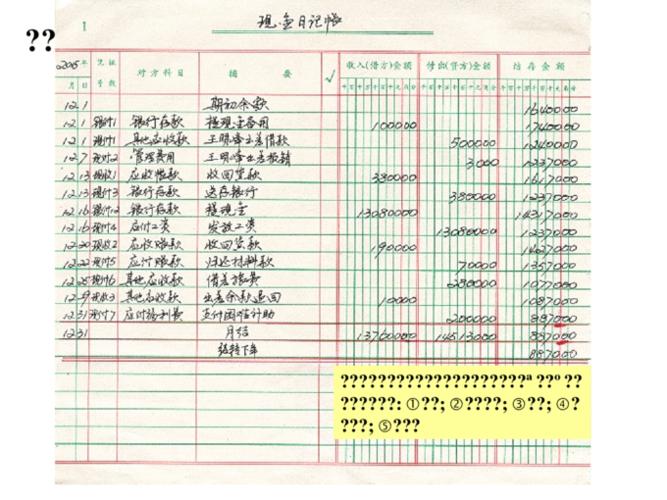 ??
1
现金日记帐
2015年 凭证 对方科目 摘要 √ 收入(借方)金额 付出(贷方)金额 结存金额
月 日 号数 千百十万千百十元角分 千百十万千百十元角分 千百十万千百十元角分
12 1 期初余款 1640000
12 1 银付1 银行存款 提现金备用 100000 1740000
12 1 现付1 其他应收款 王明李出差借款 500000 1240000
12 7 现付2 管理费用 3000 1237000
12 13 现收1 应收帐款 收回货款 380000 1617000
12 13 现付3 银行存款 送存银行 380000 1237000
12 16 银付2 银行存款 提现金 13080000 14317000
12 16 现付4 应付工资 发放工资 13080000 1237000
12 20 现收2 应收账款 收回货款 190000 1427000
12 22 现付5 应付账款 归还材料款 70000 1357000
12 25 现付6 其他应收款 借差旅费 280000 1077000
12 29 现收3 其他应收款 出差余款退回 10000 1087000
12 31 现付7 应付福利费 支付困难补助 200000 887000
12 31 月结 13760000 14513000 887000
结转下年 887000
????????????????????ª ??º ??
??????: ①??; ②????; ③??; ④?
???; ⑤???